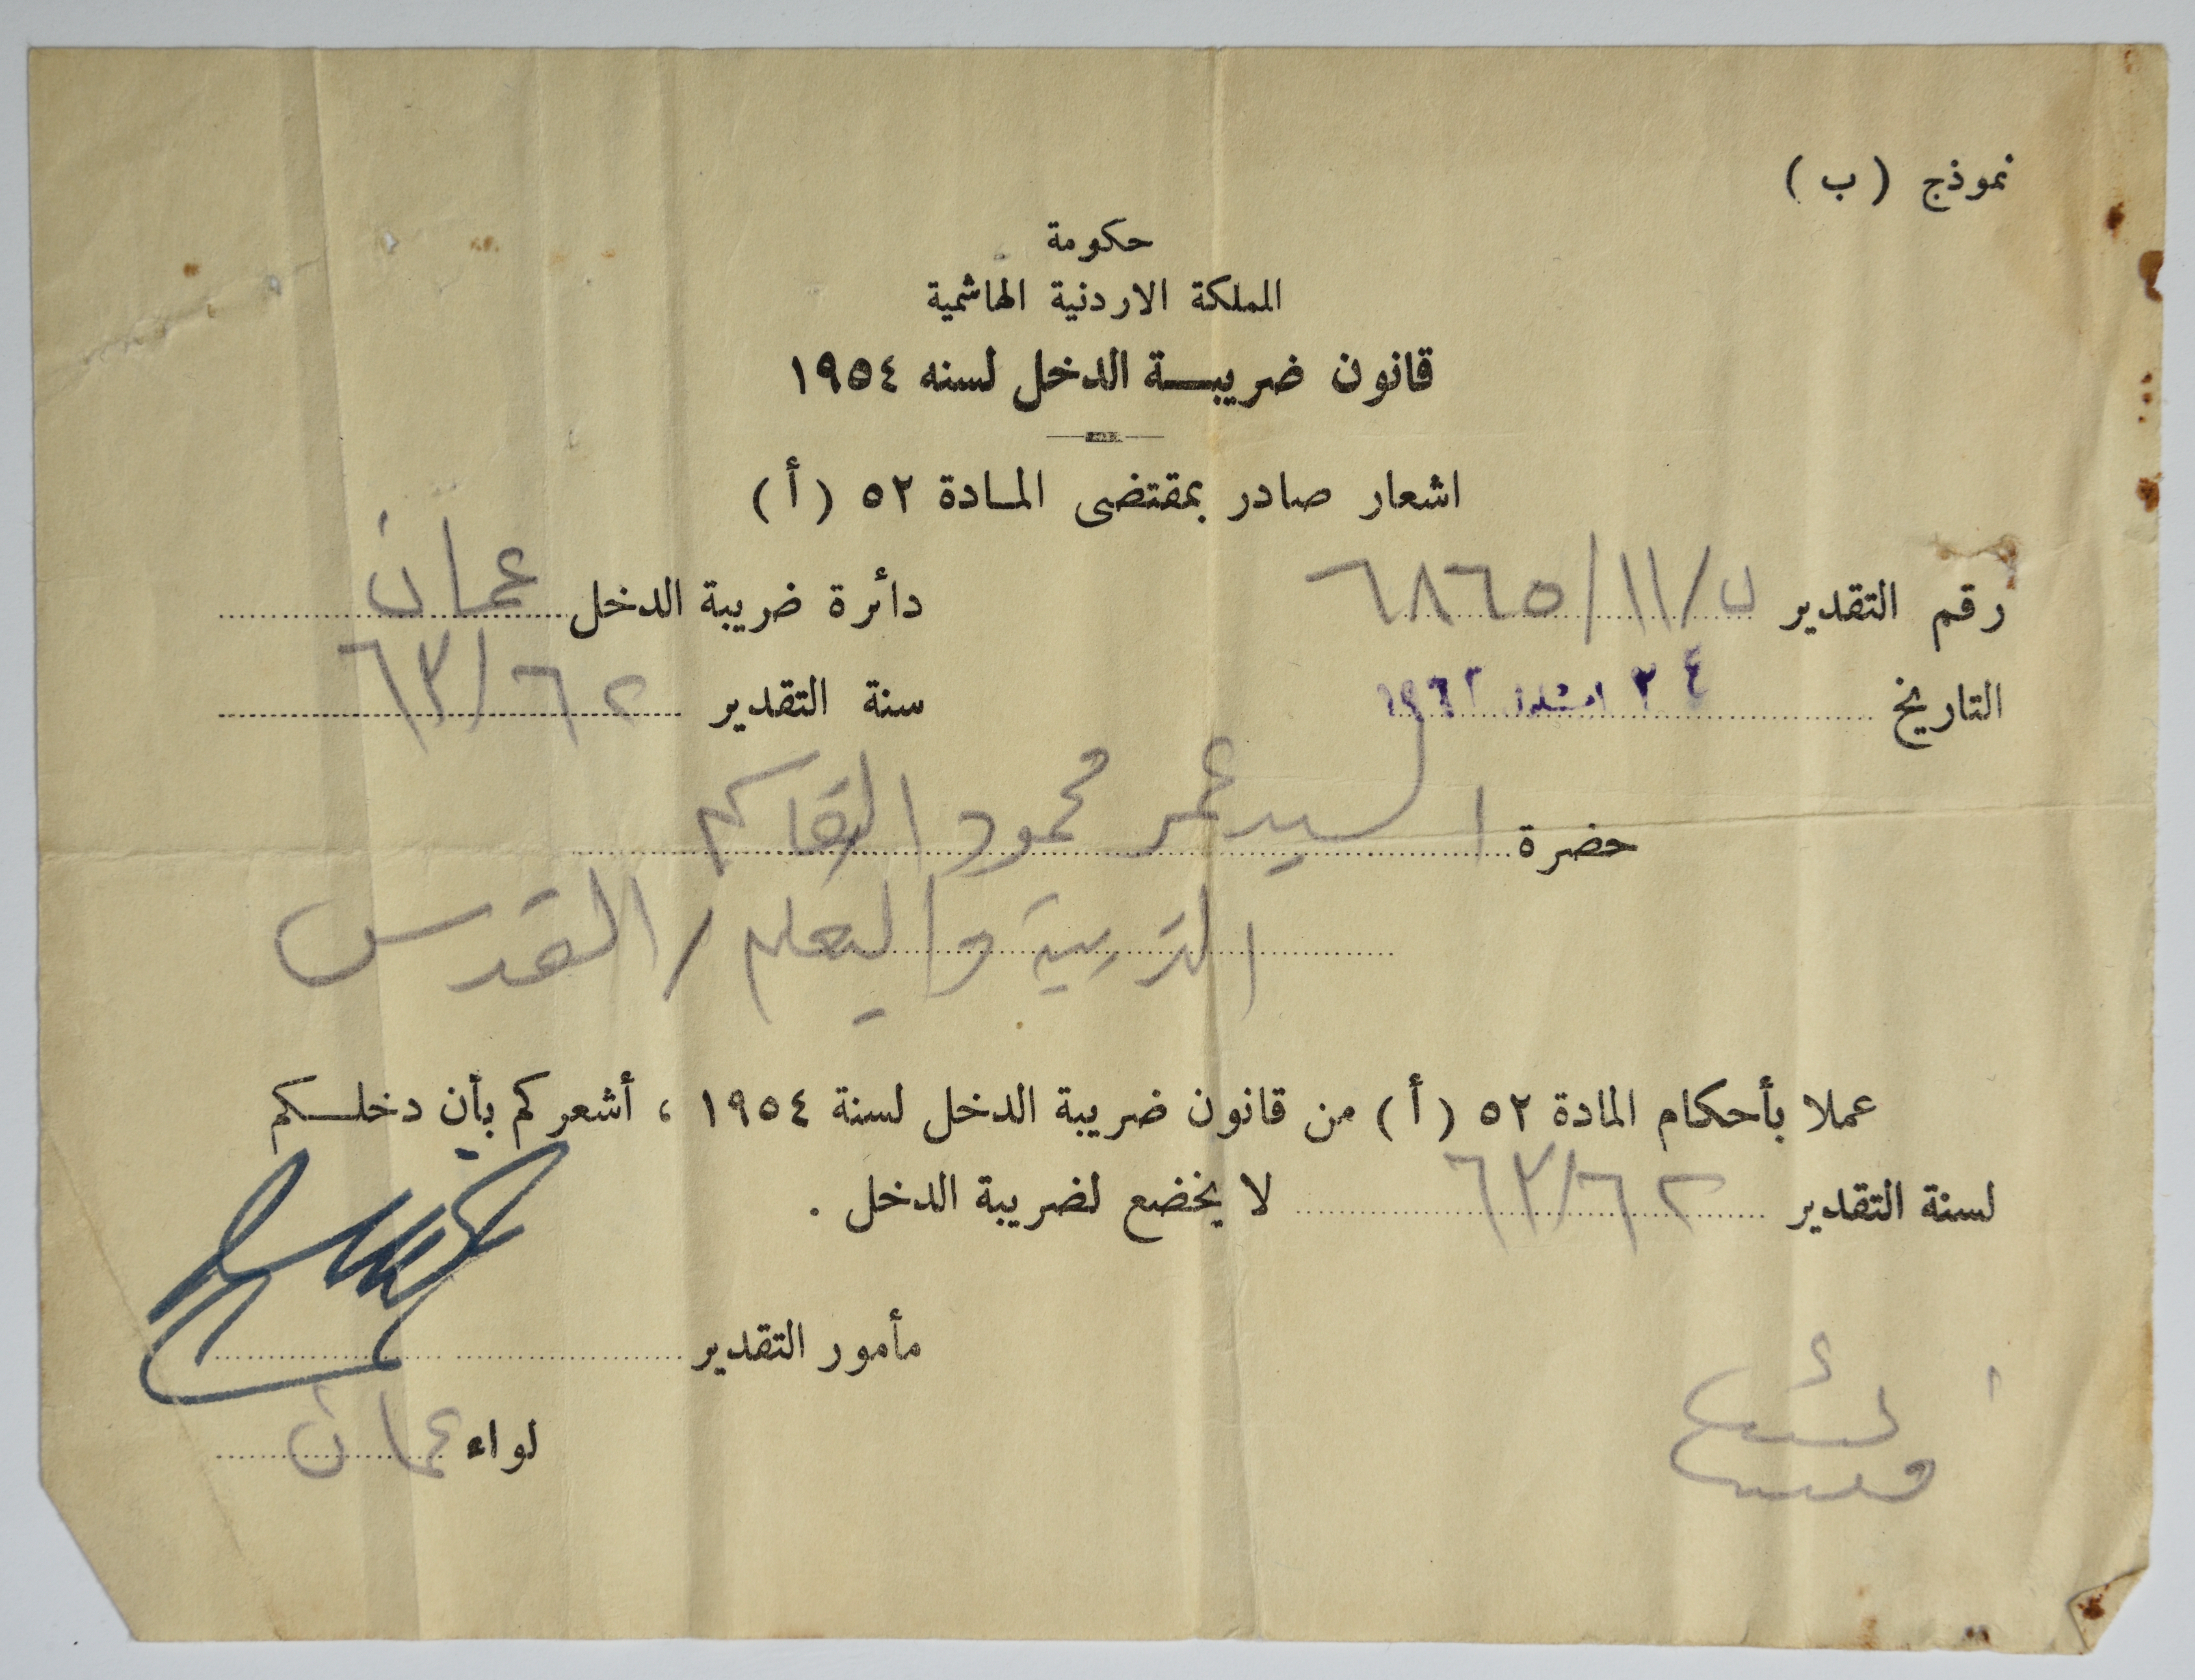 نموذج (ب)
حكومة
المملكة الاردنية الهاشمية
قانون ضريبة الدخل لسنه ١٩٥٤
اشعار صادر بمقتضى المادة ٥٢ (أ)
رقم التقدير ل/١١/٦٨٦٥ دائرة ضريبة الدخل عمان
التاريخ ١٩٦٢ سنة التقدير ٦٣/٦٢
حضرة السيد عمر محمود القاسم
التربية والتعليم / القدس
عملا بأحكام المادة ٥٢ (أ) من قانون ضريبة الدخل لسنة ١٩٥٤ ، أشعركم بأن دخلكم
لسنة التقدير ٦٣/٦٢ لا يخضع لضريبة الدخل .
مأمور التقدير
لواء عمان